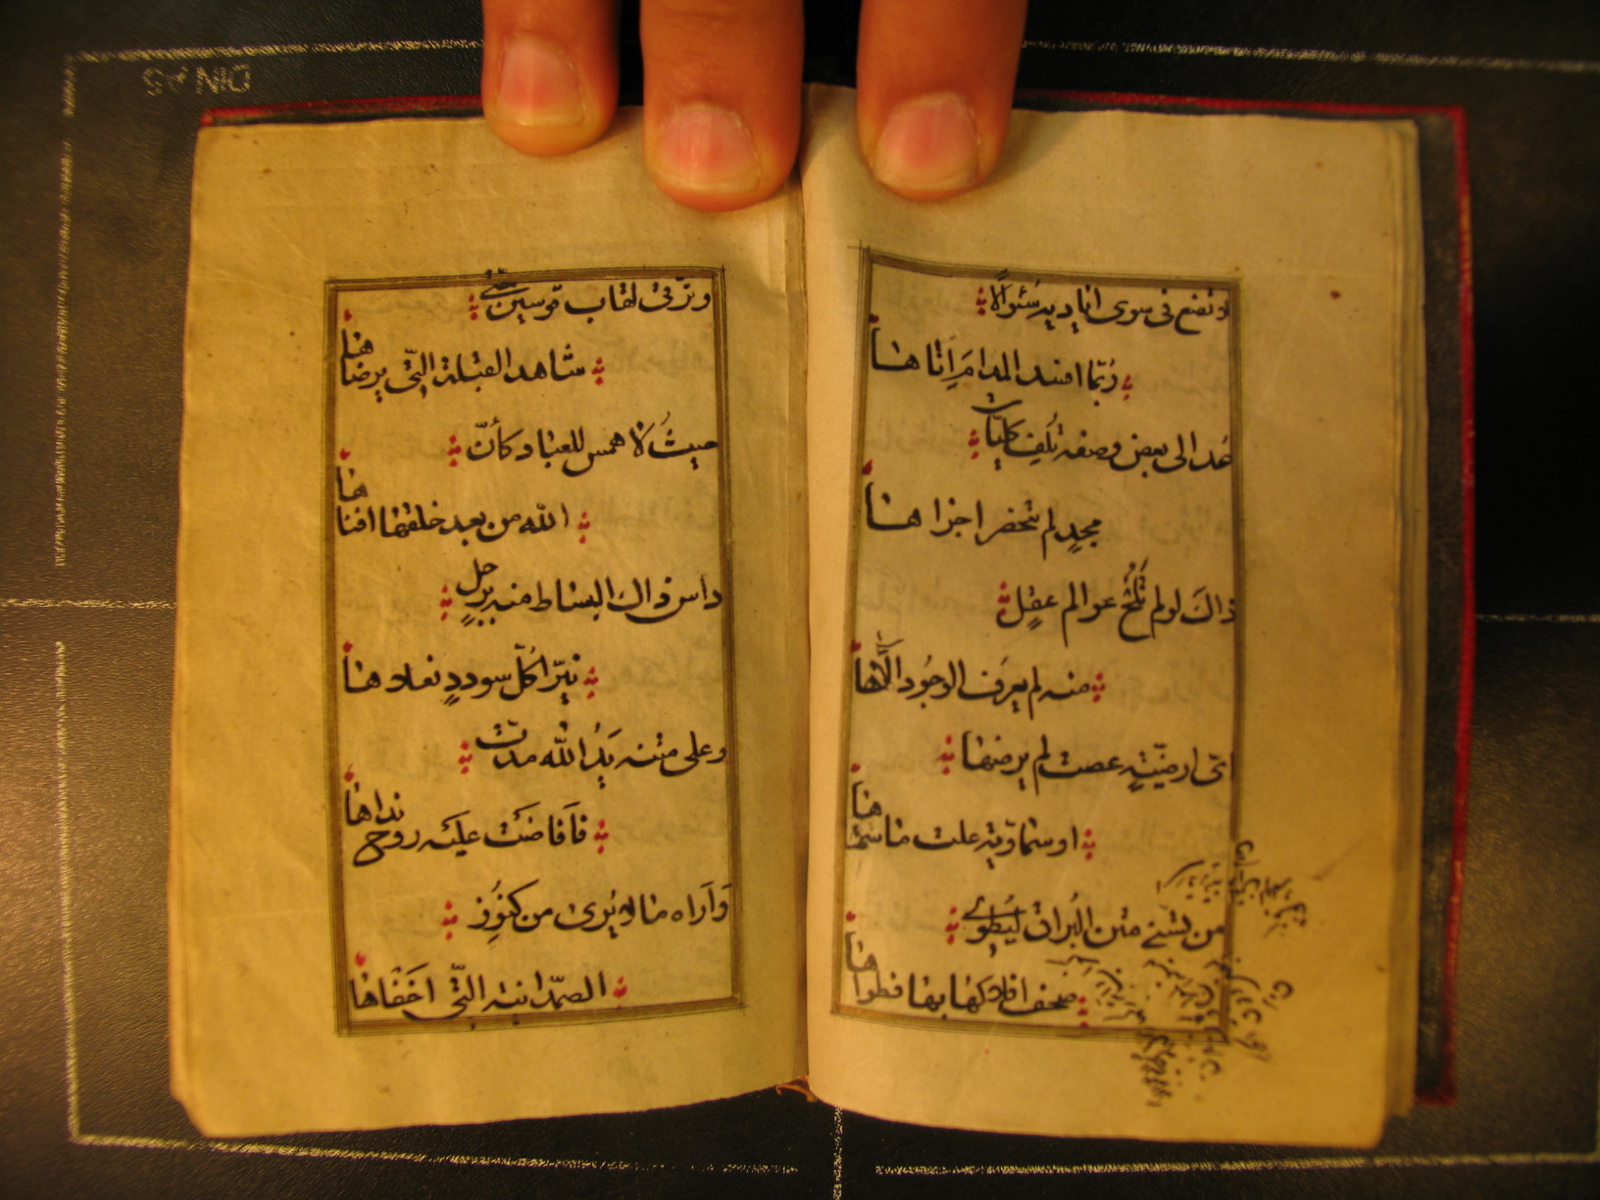 لا تضع فى سوى اياديه سُئولًا
رُبّما افسد المدام اِناها
عُد الى بعض وصفه تَلقِ كليّات
مجدٍ لم تنحصر اجزاها
ذاكَ لو لم تَلُحْ عوالم عقلٍ
منه لم يعرف الوجُود الّاها
اىّ ارضيّةٍ عصت لم يرضها
او سماويّة علت ما سماها
من تسنّى متن البُراق ليَطوى
صحف افلاكها بها فطواها
وترقى لقاب قوسين حتّى
شاهد القبلة الّتى يرضاها
حيثُ لا همس للعباد كأنّ
الله من بعد خلقها افناها
داس ذاك البساط منه برجلٍ
نيّرا كلّ سوددٍ نعلاها
وعلى متنه يَدُ الله مدّت
فاَفاضَت عليه روح نداها
وَاَراه ما لا يُرى من كنُوز
الصمدانية الّتى اَخفاها
DIN A5